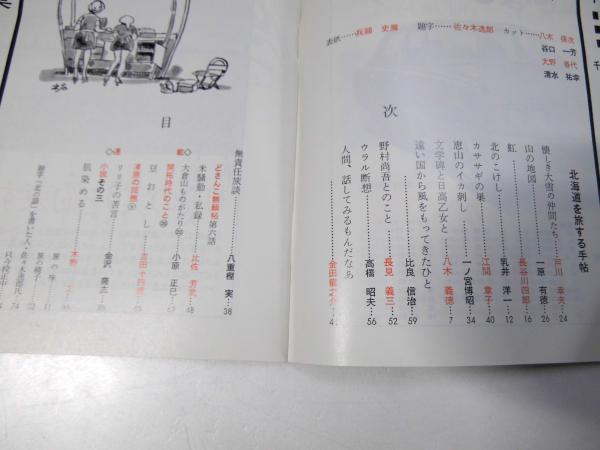 表紙……兵頭 史風
題字……佐々木逸郎
カット……八木 保次
谷口 一芳
大野 春代
清水 祐幸
目次
北海道を旅する手帖
懐しき大雪の仲間たち……戸川 幸夫…24
山の地図……一原 有徳…26
虹……長谷川四郎…16
北のこけし……乳井 洋一…12
カササギの巣……江間 章子…40
恵山のイカ刺し……一ノ宮博昭…34
文学碑と日高乙女と……八木 義徳…7
遠い国から風をもってきたひと……比良 信治…59
野村尚吾とのこと……長見 義三…52
ウラル断想……高橋 昭夫…56
人間、話してみるもんだなぁ……金田龍之介…4
無責任放談……八重樫 実…38
どさんこ無頼帖 第六話
米騒動・私録……比佐
48
◇連載◇
大倉山ものがたり……小原 正巳…
開拓時代のこと
豆おとし……吉田十四雄…
凍原の回想
リリ子の苦言……金沢
小説 その三
肌染める……木野 工…
題字「北の話」を書いた人・佐々木逸郎氏
旅の味
旅の椅子